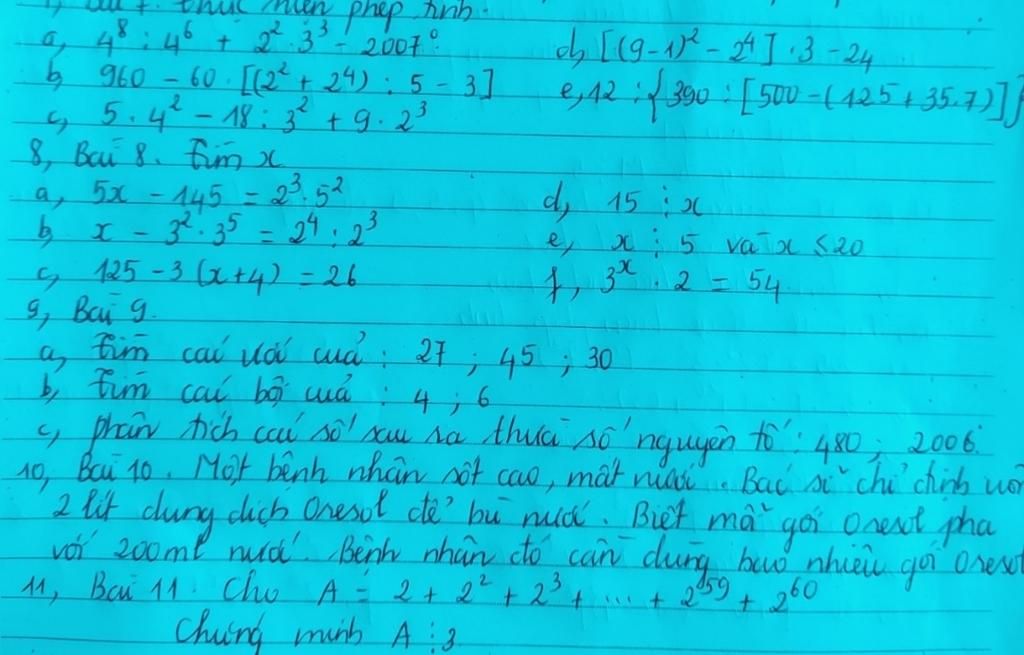 7, Bài 7. Thực hiện phép tính.
a, 4⁸ : 4⁶ + 2² . 3³ - 2007⁰ d, [(9-1)² - 2⁴] . 3 - 24
b, 960 - 60 . [(2² + 2⁴) : 5 - 3] e, 12 : {390 : [500 - (125 + 35.7)]}
c, 5 . 4² - 18 : 3² + 9 . 2³
8, Bài 8. Tìm x
a, 5x - 145 = 2³ . 5² d, 15 ⋮ x
b, x - 3² . 3⁵ = 2⁴ : 2³ e, x ⋮ 5 và x ≤ 20
c, 125 - 3 (x+4) = 26 f, 3ˣ . 2 = 54
9, Bài 9.
a, Tìm các ước của : 27 ; 45 ; 30
b, Tìm các bội của : 4 ; 6
c, phân tích các số sau ra thừa số nguyên tố : 480 ; 2006.
10, Bài 10. Một bệnh nhân sốt cao, mất nước. Bác sĩ chỉ định uốn
2 lít dung dịch Oresol để bù nước. Biết mỗi gói Oresol pha
với 200ml nước. Bệnh nhân đó cần dùng bao nhiêu gói Oresol
11, Bài 11. Cho A = 2 + 2² + 2³ + ... + 2⁵⁹ + 2⁶⁰
Chứng minh A ⋮ 3